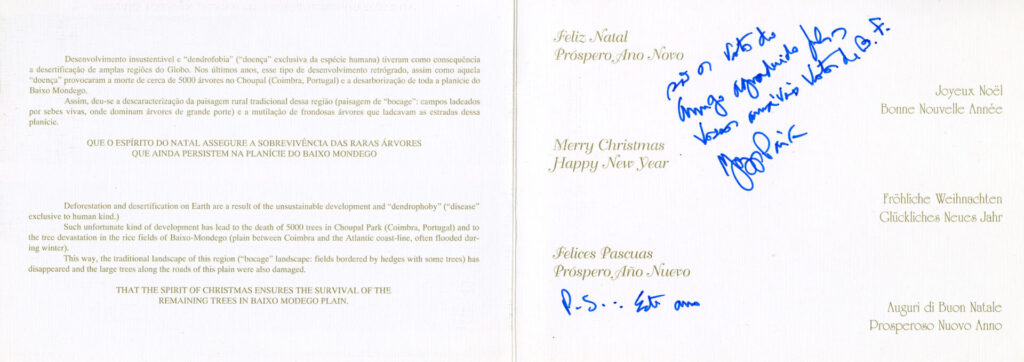 Desenvolvimento insustentável e “dendrofobia” (“doença” exclusiva da espécie humana) tiveram como consequência
a desertificação de amplas regiões do Globo. Nos últimos anos, esse tipo de desenvolvimento retrógrado, assim como aquela
“doença” provocaram a morte de cerca de 5000 árvores no Choupal (Coimbra, Portugal) e a desarborização de toda a planície do
Baixo Mondego.
Assim, deu-se a descaracterização da paisagem rural tradicional dessa região (paisagem de “bocage”: campos ladeados
por sebes vivas, onde dominam árvores de grande porte) e a mutilação de frondosas árvores que ladeavam as estradas dessa
planície.
QUE O ESPÍRITO DO NATAL ASSEGURE A SOBREVIVÊNCIA DAS RARAS ÁRVORES
QUE AINDA PERSISTEM NA PLANÍCIE DO BAIXO MONDEGO
Deforestation and desertification on Earth are a result of the unsustainable development and “dendrophoby” (“disease”
exclusive to human kind.)
Such unfortunate kind of development has lead to the death of 5000 trees in Choupal Park (Coimbra, Portugal) and to
the tree devastation in the rice fields of Baixo-Mondego (plain between Coimbra and the Atlantic coast-line, often flooded dur-
ing winter).
This way, the traditional landscape of this region (“bocage” landscape: fields bordered by hedges with some trees) has
disappeared and the large trees along the roads of this plain were also damaged.
THAT THE SPIRIT OF CHRISTMAS ENSURES THE SURVIVAL OF THE
REMAINING TREES IN BAIXO MODEGO PLAIN.
Feliz Natal
Próspero Ano Novo
são os votos do
amigo agradecido pelos
votos de B. F.
Joyeux Noël
Bonne Nouvelle Année
Merry Christmas
Happy New Year
Fröhliche Weihnachten
Glückliches Neues Jahr
Felices Pascuas
Próspero Año Nuevo
P.S... Este ano
Auguri di Buon Natale
Prosperoso Nuovo Anno